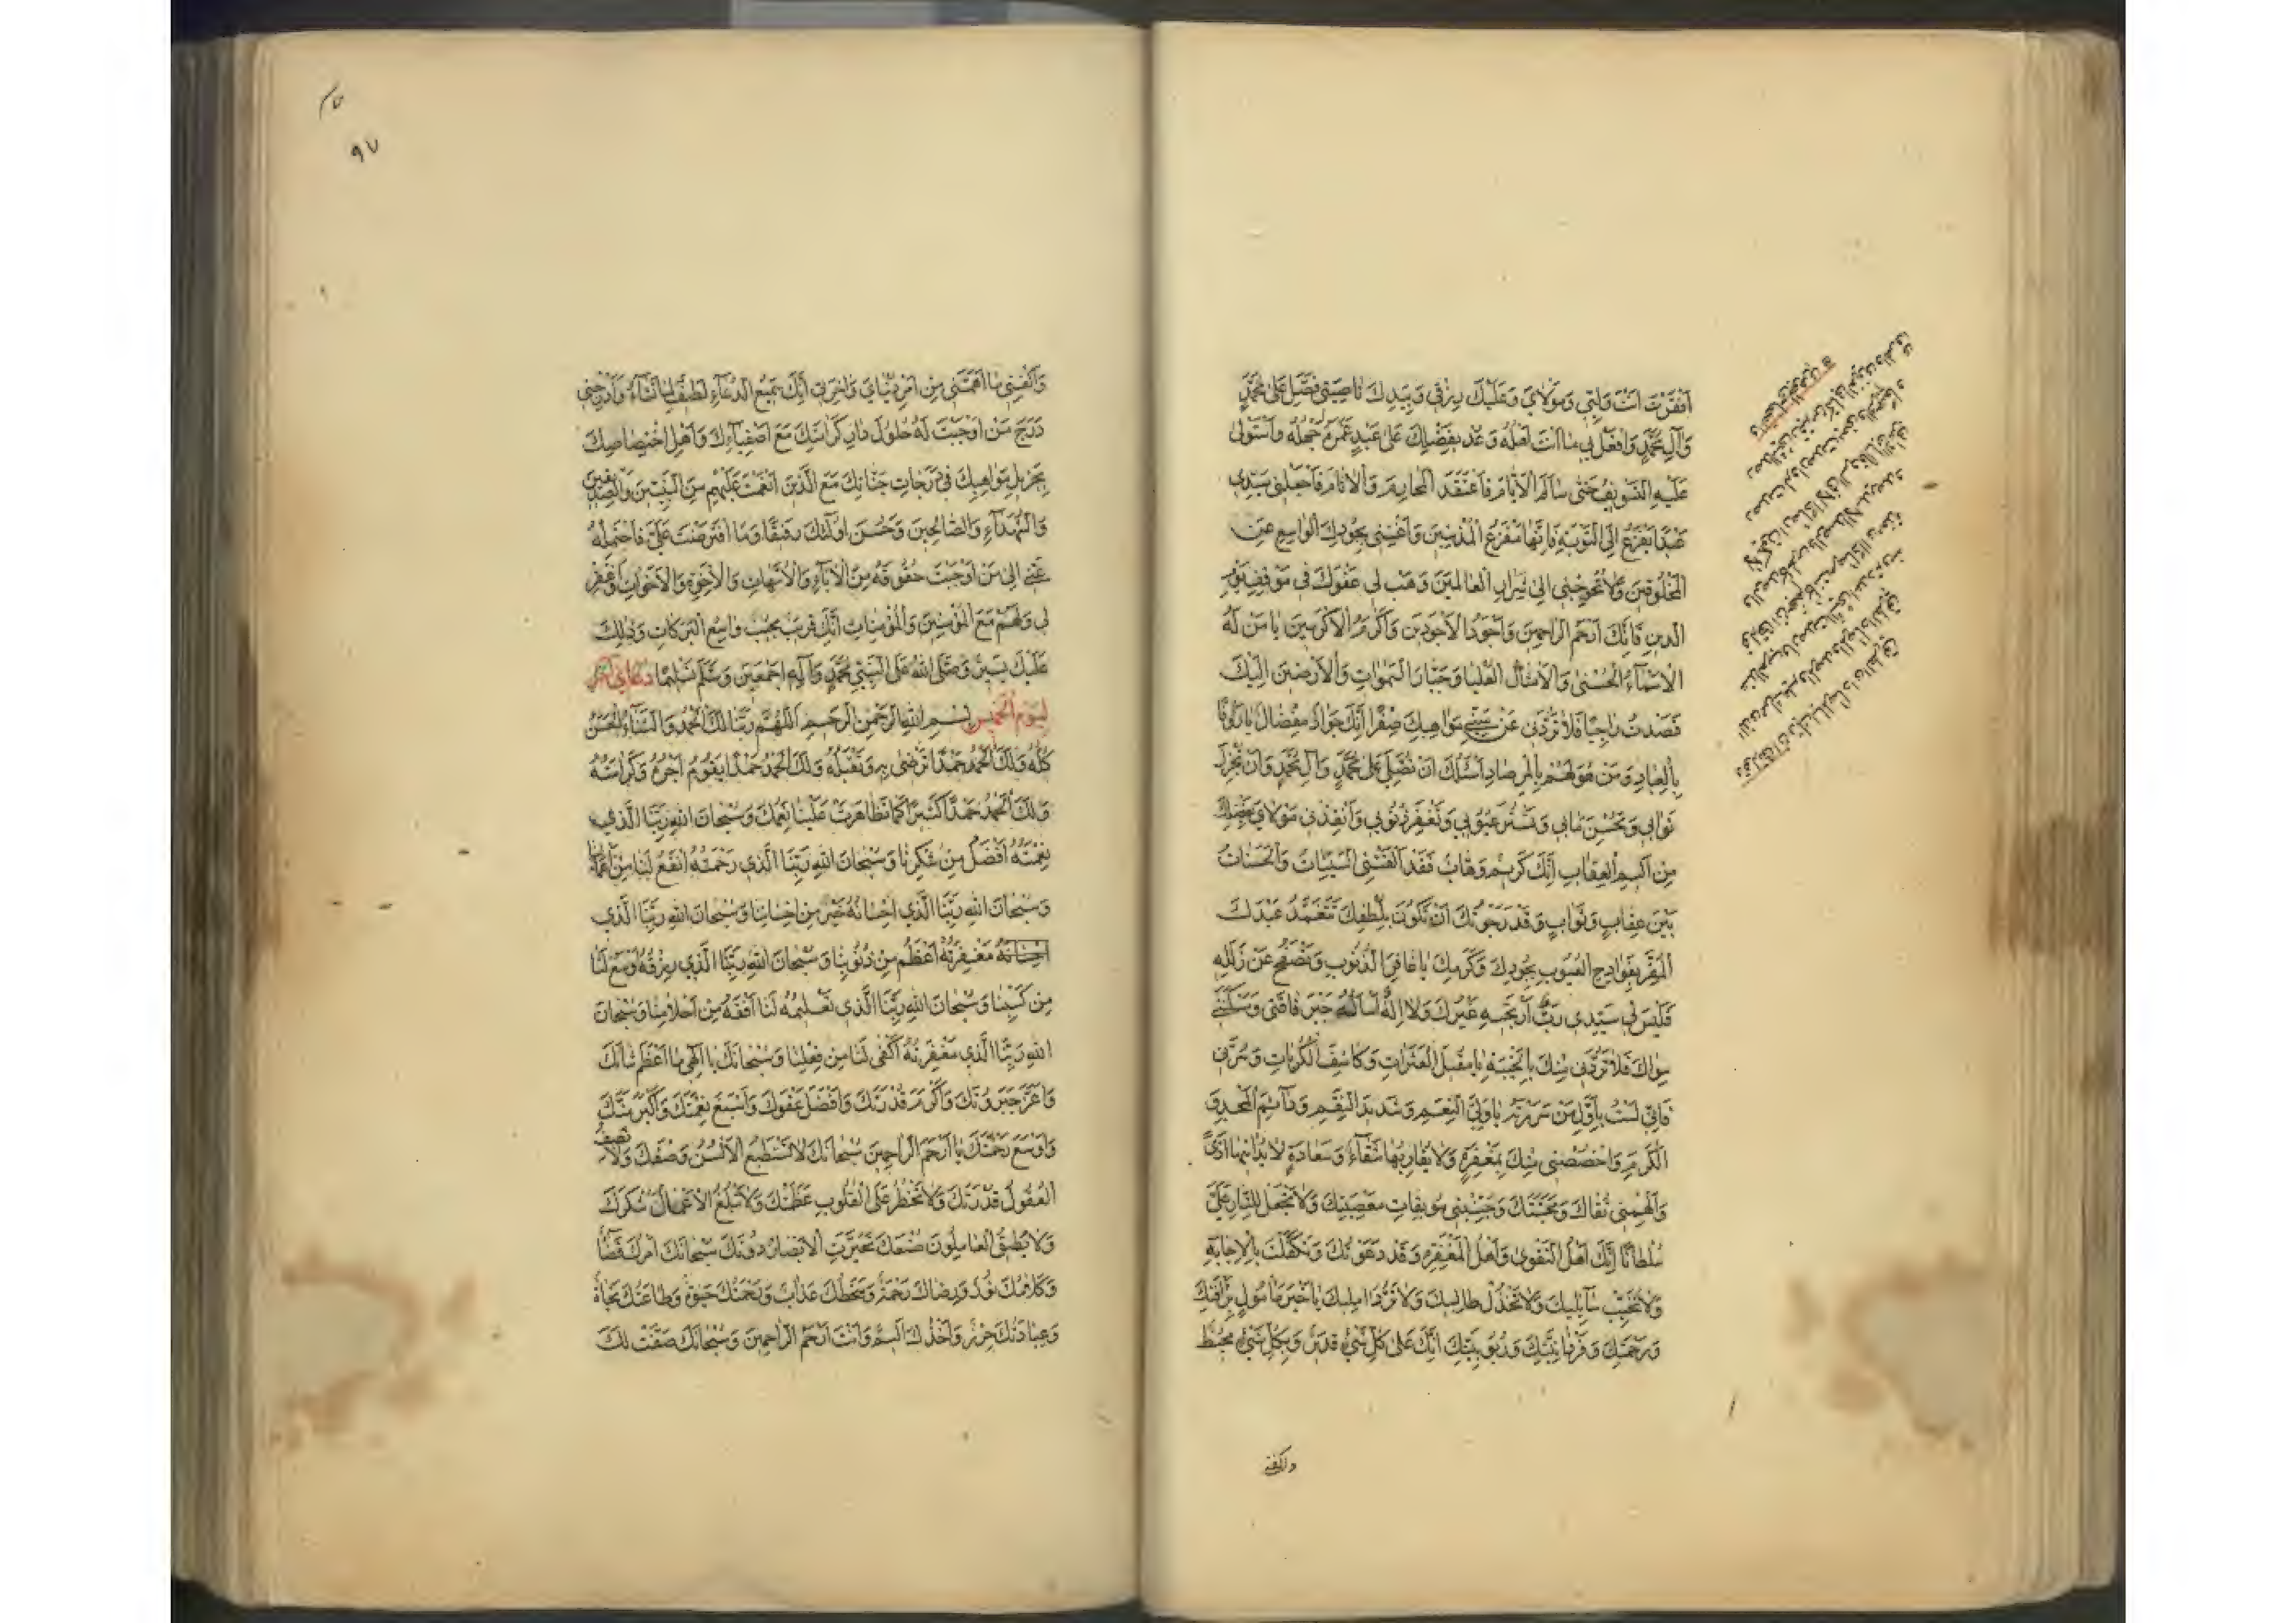 افقرت انت ولیی ومولای وعلیك رزقی وبیدك ناصیتی فصل علی محمد
وآل محمد وافعل بی ما انت اهله وعد بفضلك علی عبد غمره جهله واستولی
علیه التسویف حتی سالم الایام فاعتقد المحارم والاثام فاجعلنی سیدی
عبدا یفزع الی التوبة فانها مفزع المذنبین واغننی بجودك الواسع عن
المخلوقین ولا تحوجنی الی شرار العالمین وهب لی عفوك فی موقف یوم
الدین فانك ارحم الراحمین واجود الاجودین واكرم الاكرمین یا من له
الاسمآء الحسنی والامثال العلیا وجبار السموات والارضین الیك
قصدت راجیا فلا تردنی عن سنی مواهبك صفرا انك جواد مفضال یا رؤفا
بالعباد ومن هو لهم بالمرصاد اسئلك ان تصلی علی محمد وآل محمد وان تجزل
ثوابی وتحسن مابی وتستر عیوبی وتغفر ذنوبی وانقذنی مولای بفضلك
من الیم العقاب انك كریم وهاب فقد القتنی السیئات والحسنات
بین عقاب وثواب وقد رجوتك ان تكون بلطفك تتغمد عبدك
المقر بفوادح العیوب بجودك وكرمك یا غافر الذنوب وتصفح عن زلله
فلیس لی سیدی رب ارتجیه غیرك ولا اله اساله جبر فاقتی ومسكنتی
سواك فلا تردنی منك بالخیبة یا مقیل العثرات وكاشف الكربات وسرنی
فانی لست باول من سررته یا ولی النعم وشدید النقم ودآئم المجد و
الكرم واخصصنی منك بمغفرة ولا یقاربها شقآء وسعادة لا یدانیها اذی
والهمنی تقاك ومحبتك وجنبنی موبقات معصیتك ولا تجعل للنار علی
سلطانا انك اهل التقوی واهل المغفرة وقد دعوتك وتكفلت بالاجابة
ولا تخیب سآئلیك ولا تخذل طالبیك ولا ترد املیك یا خیر مامول برافتك
ورحمتك وفردانیتك وربوبیتك انك علی كل شیء قدیر وبكل شیء محیط
واكفنی
٩٧
واكفنی ما اهمنی من امر دنیای واخرتی انك سمیع الدعآء لطیف لما تشآء وادرجنی
درج من اوجبت له حلول دار كرامتك مع اصفیآءك واهل اختصاصك
بجزیل مواهبك فی درجات جناتك مع الذین انعمت علیهم من النبیین والصدیقین
والشهدآء والصالحین وحسن اولئك رفیقا وما افترضت علی فاحتمله
عنی الی من اوجبت حقوقه من الآبآء والامهات والاخوة والاخوات واغفر
لی ولهم مع المؤمنین والمؤمنات انك قریب مجیب واسع البركات وذلك
علیك یسیر وصلی الله علی النبی محمد وآله اجمعین وسلم تسلیما دعاء آخر
لیوم الخمیس بسم الله الرحمن الرحیم اللهم ربنا لك الحمد والثنآء الحسن
كله ولك الحمد حمدا ترضی به وتقبله ولك الحمد حمدا یقوم اجره وكرامته
ولك الحمد حمدا كثیرا كما تظاهرت علینا نعمك وسبحان الله ربنا الذی
نعمته افضل من شكرنا وسبحان الله ربنا الذی رحمته انفع لنا من اعمالنا
وسبحان الله ربنا الذی احسانه خیر من احساننا وسبحان الله ربنا الذی
احسانه مغفرته اعظم من ذنوبنا وسبحان الله ربنا الذی رزقه اوسع لنا
من كسبنا وسبحان الله ربنا الذی تعلیمه لنا افقه من احلامنا وسبحان
الله ربنا الذی مغفرته اكفی لنا من فعلنا وسبحانك یا الهی ما اعظم شانك
واعز جبروتك واكرم قدرتك وافضل عفوك واسبغ نعمتك واكبر منك
واوسع رحمتك یا ارحم الراحمین سبحانك لا تستطیع الالسن وصفك ولا تصف
العقول قدرتك ولا تخطر علی القلوب عظمتك ولا تبلغ الاعمال شكرك
ولا یطیق العاملون صنعك تحیرت الابصار دونك سبحانك امرك قضآ
وكلامك نور ورضاك رحمة وسخطك عذاب ورحمتك حیوة وطاعتك نجاة
وعبادتك حرز واخذك الیم وانت ارحم الراحمین وسبحانك صفت لك